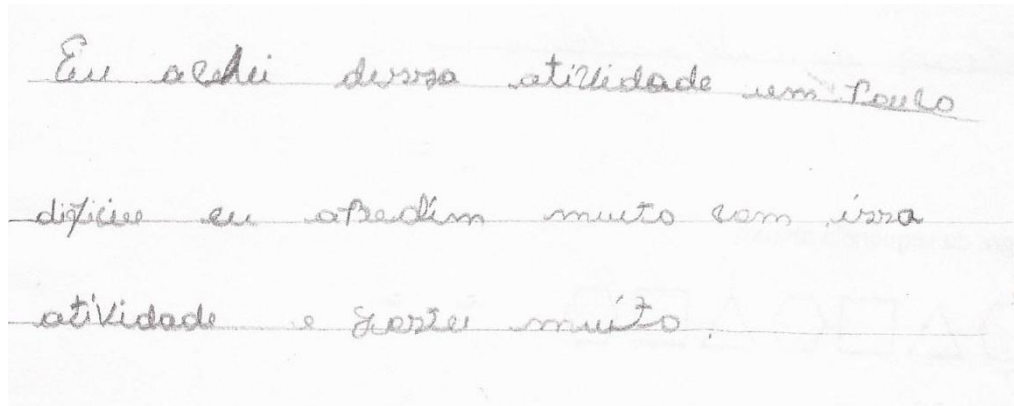 Eu achei dessa atividade um Pouco
dificiu eu apredim muito com issa
atividade e gostei muito.